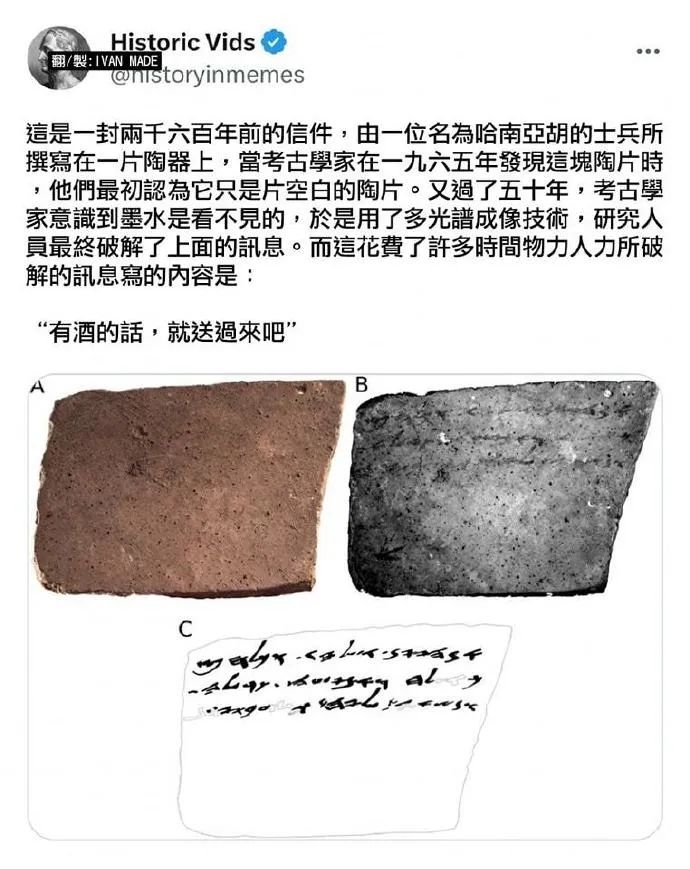 Historic Vids
翻/製:IVAN MADE
@historyinmemes
這是一封兩千六百年前的信件，由一位名為哈南亞胡的士兵所
撰寫在一片陶器上，當考古學家在一九六五年發現這塊陶片時
，他們最初認為它只是片空白的陶片。又過了五十年，考古學
家意識到墨水是看不見的，於是用了多光譜成像技術，研究人
員最終破解了上面的訊息。而這花費了許多時間物力人力所破
解的訊息寫的內容是：
“有酒的話，就送過來吧”
A
B
C